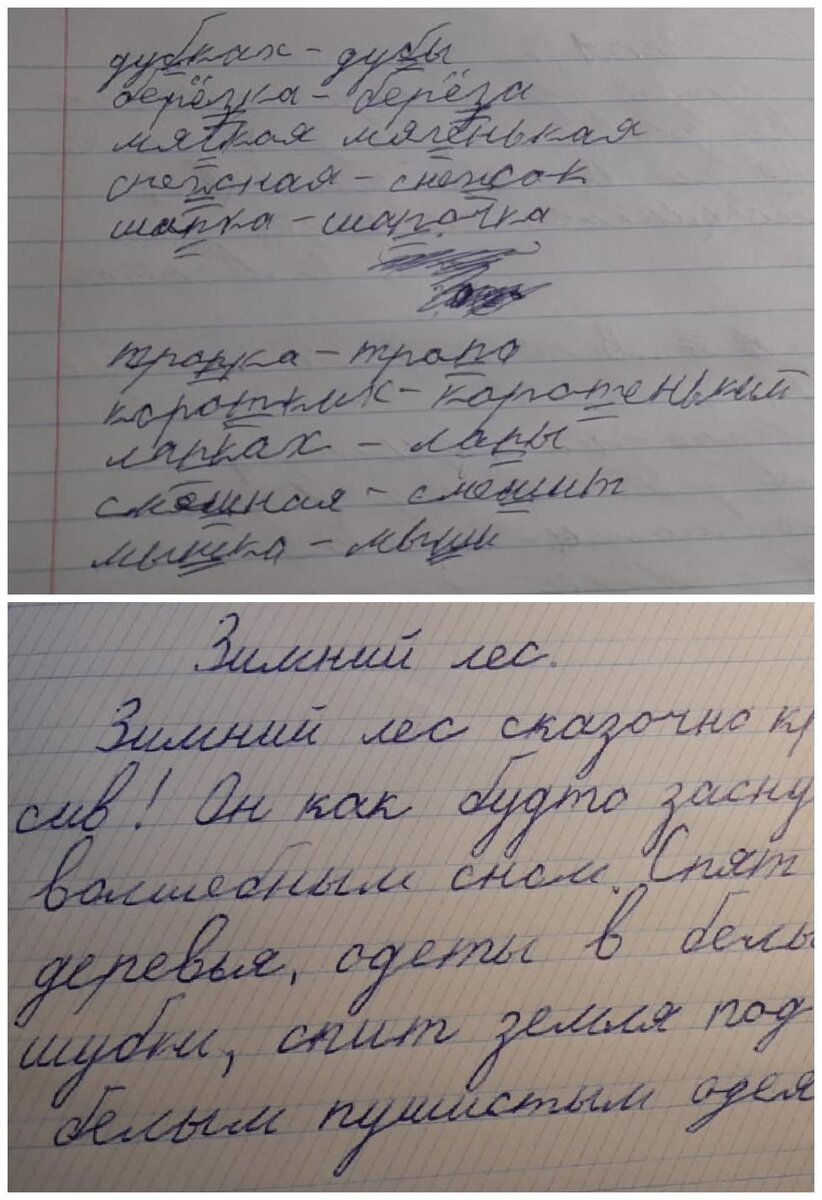 дубках - дубы
берёзка - берёза
мягкая мягенькая
снежная - снежок
шапка - шапочка
тропка - тропа
коротких - коротенький
лапках - лапы
смешная - смешит
мышка - мыши
Зимний лес.
Зимний лес сказочно кр
сив! Он как будто засну
волшебным сном. Спят
деревья, одеты в белы
шубки, спит земля под
белым пушистым одея